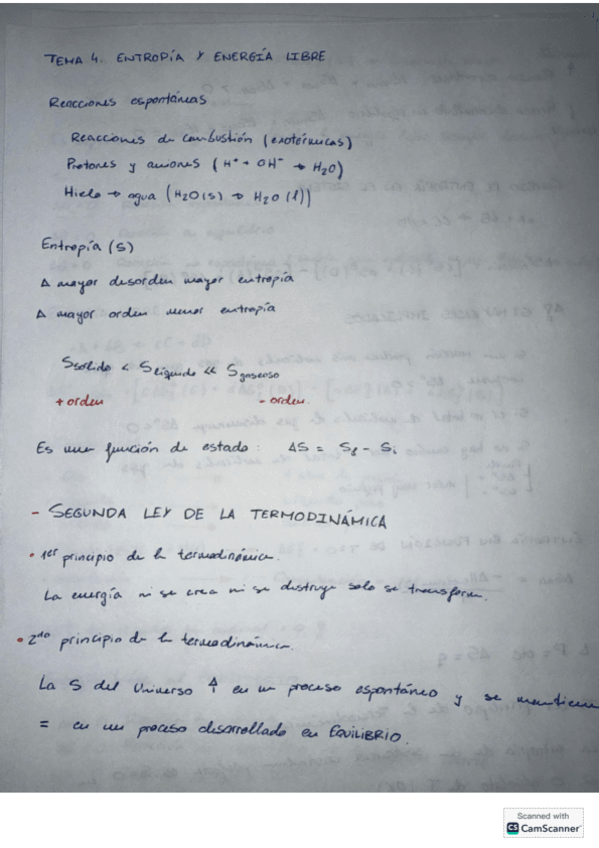 TEMA 4. ENTROPÍA Y ENERGÍA LIBRE
Reacciones espontáneas
Reacciones de combustión (exotérmicas)
Protones y aniones (H⁺ + OH⁻ → H₂O)
Hielo → agua (H₂O(s) → H₂O(l))
Entropía (S)
A mayor desorden mayor entropía
A mayor orden menor entropía
Ssólido < Slíquido << Sgaseoso
+ orden - orden.
Es una función de estado: ΔS = Sf - Si
- SEGUNDA LEY DE LA TERMODINÁMICA
• 1er principio de la termodinámica.
La energía ni se crea ni se destruye solo se transforma.
• 2do principio de la termodinámica.
La S del Universo ↑ en un proceso espontáneo y se mantiene
= en un proceso desarrollado en EQUILIBRIO.
Scanned with
CS CamScanner